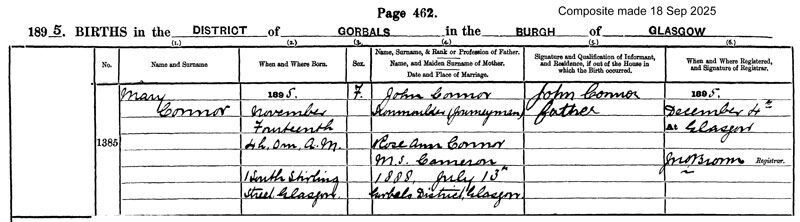 Page 462.
Composite made 18 Sep 2025
1895. BIRTHS in the DISTRICT of GORBALS in the BURGH of GLASGOW
(1.) (2.) (3.) (4.) (5.) (6.)
No.
Name and Surname
When and Where Born.
Sex.
Name, Surname, & Rank or Profession of Father.
Name, and Maiden Surname of Mother.
Date and Place of Marriage.
Signature and Qualification of Informant,
and Residence, if out of the House in
which the Birth occurred.
When and Where Registered,
and Signature of Registrar.
1385
Mary
Connor
1895.
November
Fourteenth
4h. 0m. A.M.
1 South Stirling
Street, Glasgow
F.
John Connor
Ironmoulder (Journeyman)
Rose Ann Connor
M.S. Cameron
1888. July 13th
Gorbals District, Glasgow.
John Connor
father
1895.
December 4th
At Glasgow
Jno Broom Registrar.